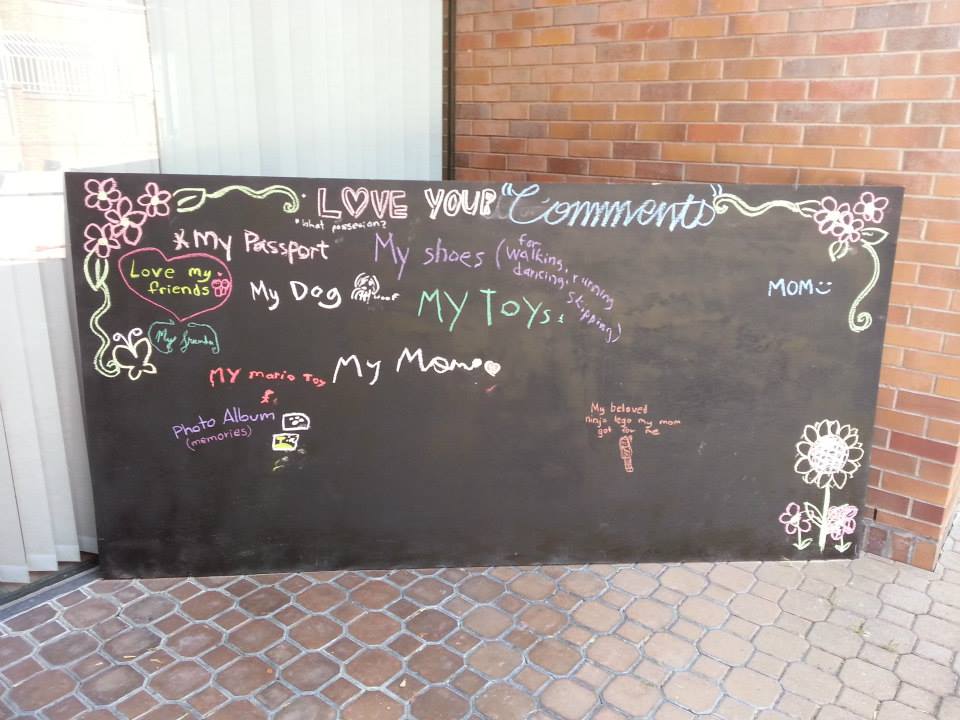 LOVE YOUR "Comments"
"What possession?
My Passport
My shoes (for
walking,
dancing, running
skipping)
Love my
friends
My Dog
woof
MY Toys.
MOM
My friends
My Mom
MY mario Toy
Photo Album
(memories)
My beloved
ninja lego my mom
got for me